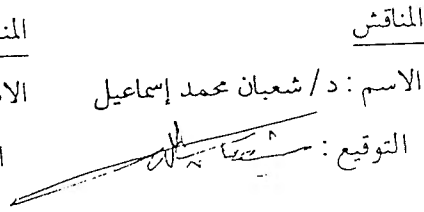 المناقش
الاسم : د / شعبان محمد إسماعيل
التوقيع :